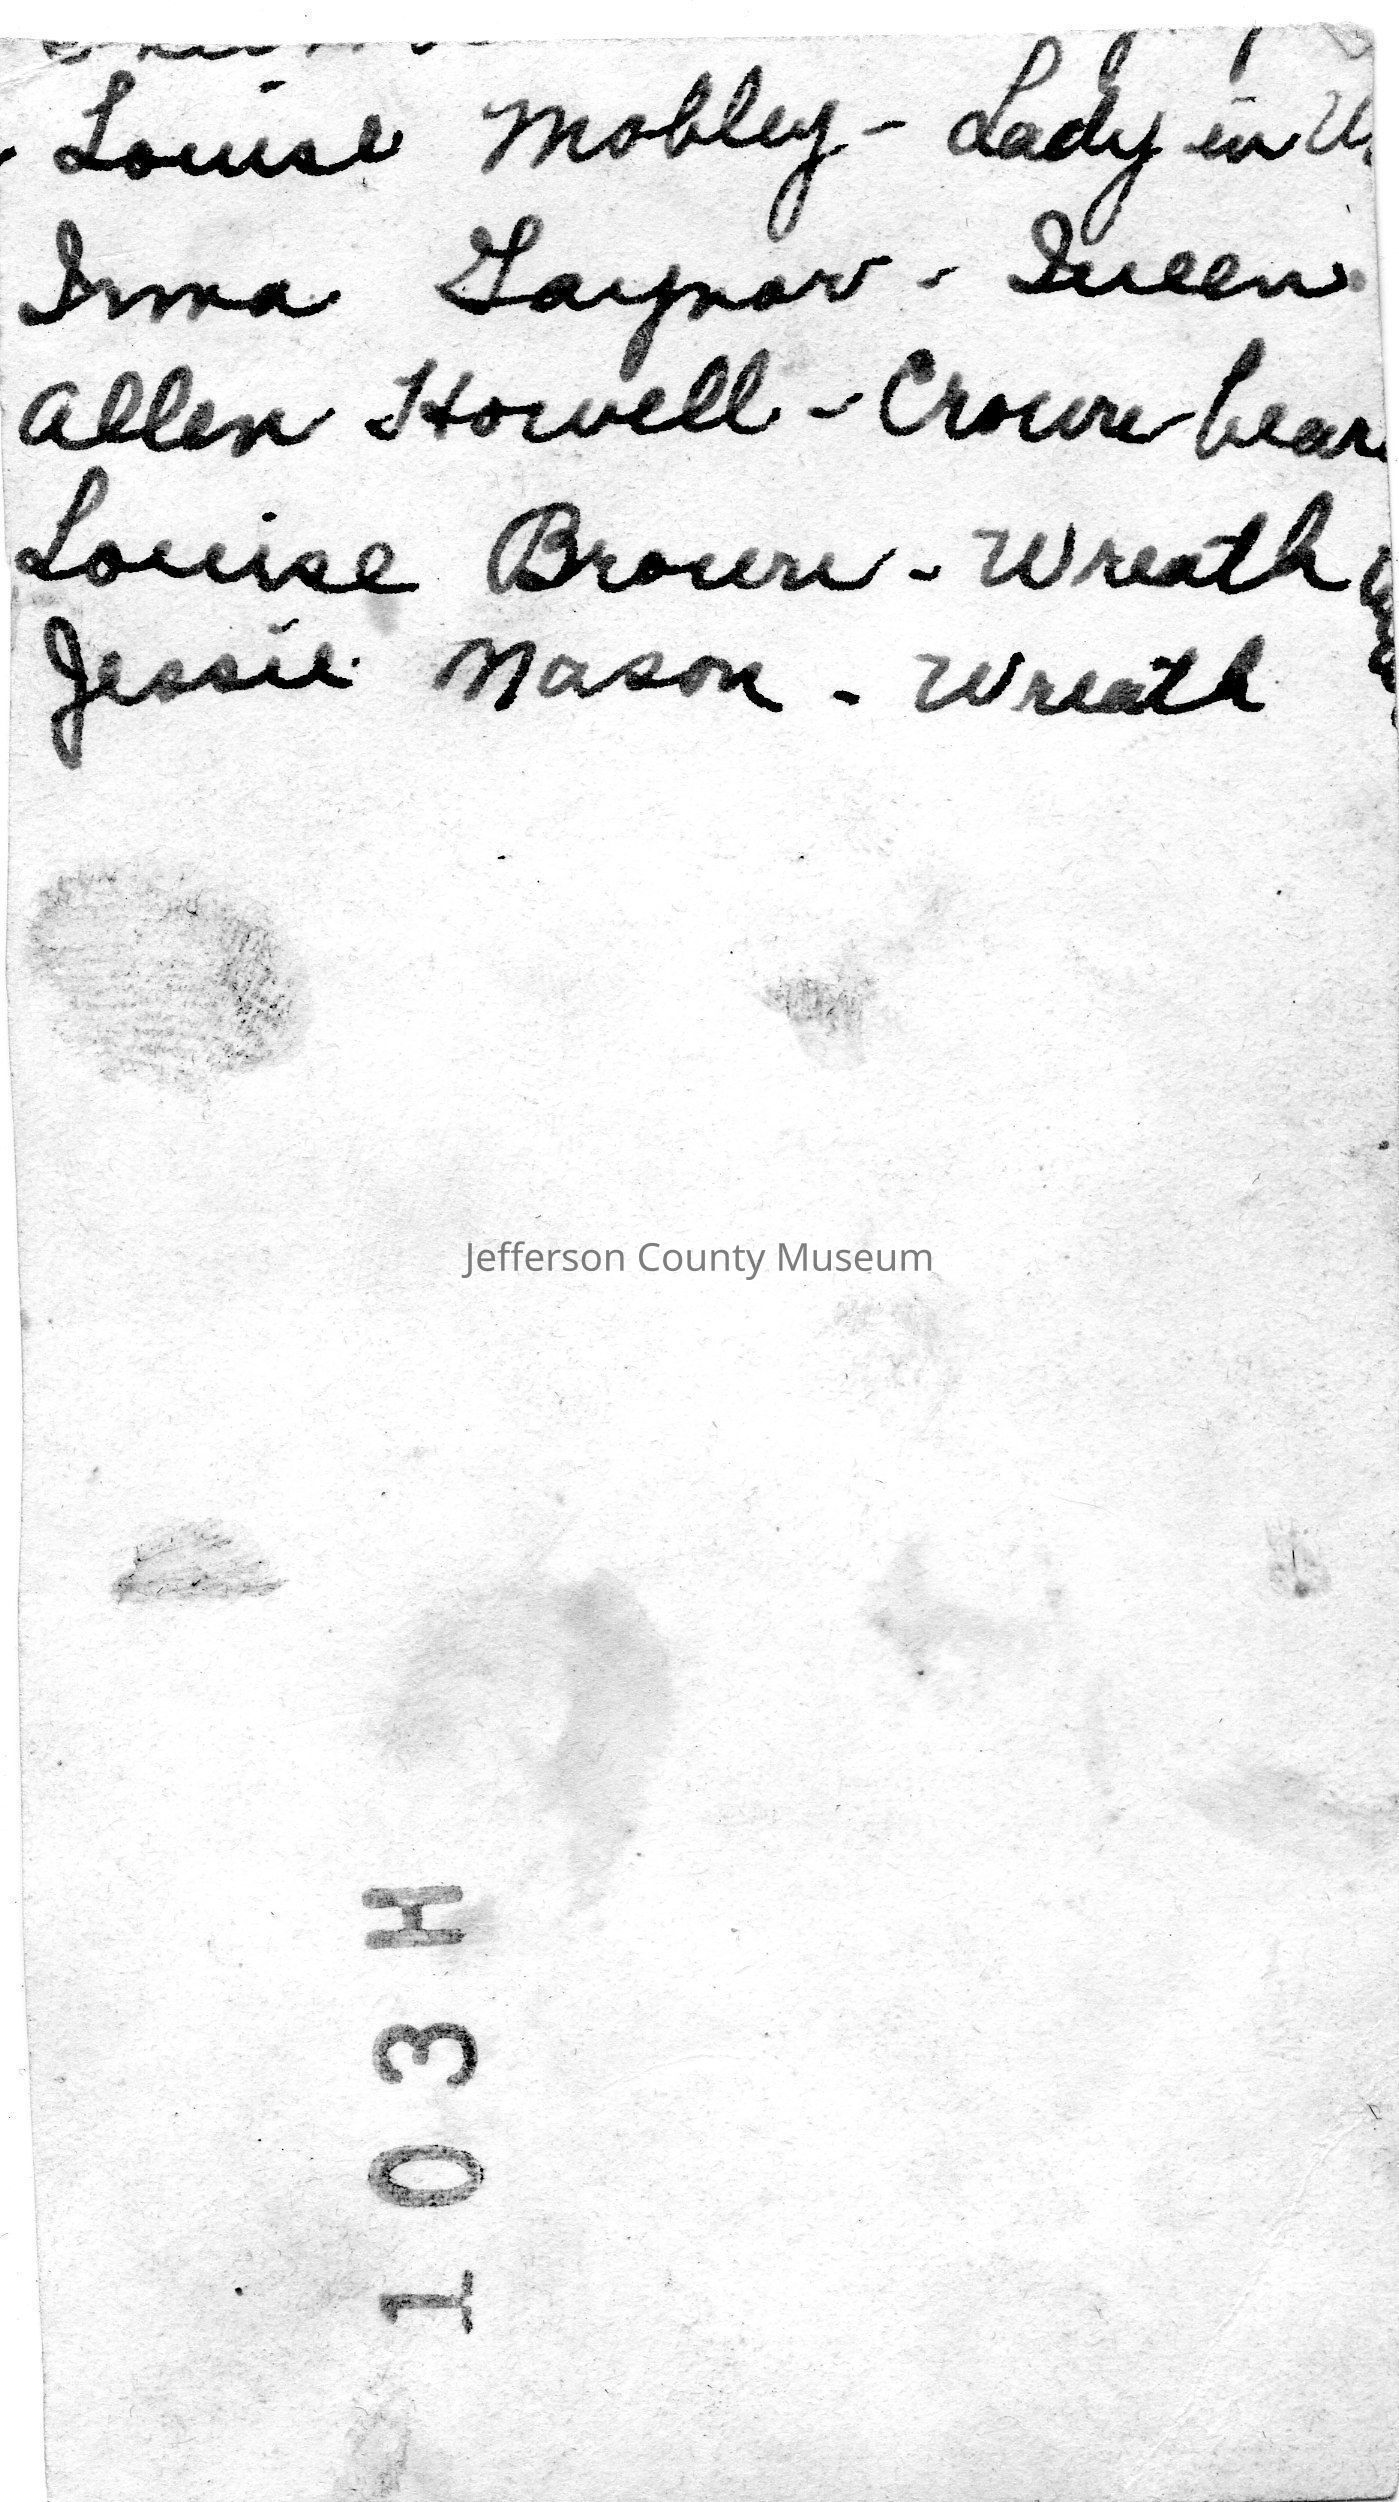 Louise Mobley - Lady in
Irma Gaynor - Queen
Allen Howell - Crown bear
Louise Brown - Wreath
Jessie Mason - Wreath
Jefferson County Museum
103H